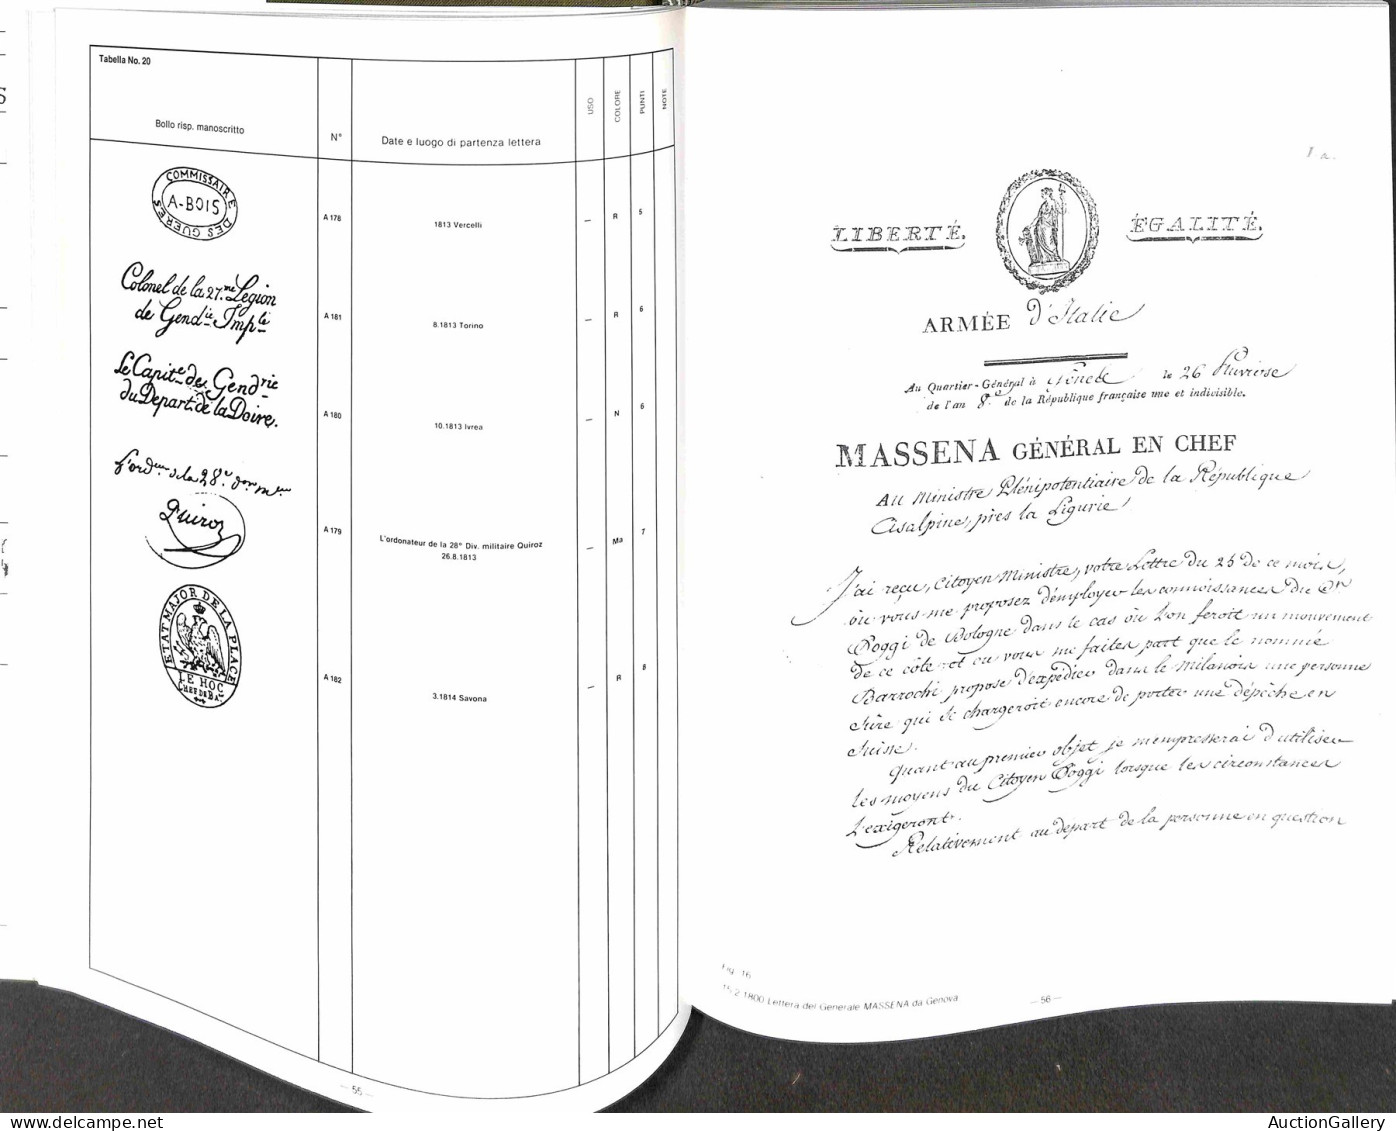 Tabella No. 20
Bollo risp. manoscritto
N°
Date e luogo di partenza lettera
USO
COLORE
PUNTI
NOTE
COMMISSAIRE DES GUERES
A-BOIS
A 178
1813 Vercelli
—
R
5
Colonel de la 27.me Légion
de Gend.ie Imp.le
A 181
8.1813 Torino
—
R
6
Le Capit.e de Gend.rie
du Depart. de la Doire.
A 180
10.1813 Ivrea
—
N
6
l'ord.eur de la 28.e
Quiroz
A 179
L'ordonateur de la 28° Div. militaire Quiroz
26.8.1813
—
Ma
7
ETAT MAJOR DE LA PLACE
LE HOC
CHEF DE BA.
A 182
3.1814 Savona
—
R
8
— 55 —
LIBERTÉ.
ÉGALITÉ.
ARMÉE d'Italie
Au Quartier-Général à Gênes le 26 Pluviose
de l'an 8.e de la République française une et indivisible.
MASSENA GÉNÉRAL EN CHEF
Au Ministre Plénipotentiaire de la République
Cisalpine, près la Ligurie
J'ai reçu, Citoyen Ministre, votre Lettre du 25 de ce mois,
où vous me proposez d'employer les connoissances du C.en
Poggi de Bologne dans le cas où l'on feroit un mouvement
de ce côté et où vous me faites part que le nommé
Barrochi propose d'expédier dans le Milanois une personne
sûre qui se chargeroit encore de porter une dépêche en
Suisse.
Quant au premier objet je m'empresserai d'utiliser
les moyens du Citoyen Poggi lorsque les circonstances
l'exigeront.
Relativement au départ de la personne en question
Fig. 16
15.2.1800 Lettera del Generale MASSENA da Genova
— 56 —
AuctionGallery